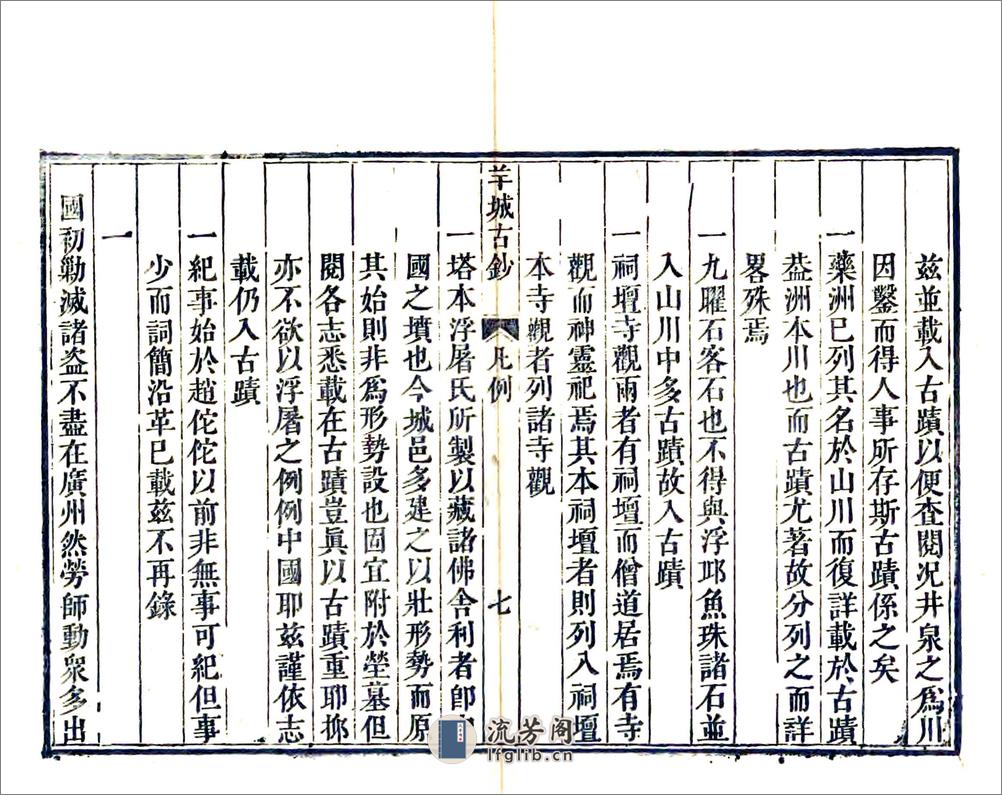 茲並載入古蹟以便查閱况井泉之爲川
因鑿而得人事所存斯古蹟係之矣
一藥洲已列其名於山川而復詳載於古蹟
葢洲本川也而古蹟尤著故分列之而詳
畧殊焉
一九曜石客石也不得與浮邱魚珠諸石並
入山川中多古蹟故入古蹟
一祠壇寺觀兩者有祠壇而僧道居焉有寺
觀而神靈祀焉其本祠壇者則列入祠壇
本寺觀者列諸寺觀
羊城古鈔 凡例 七
一塔本浮屠氏所製以藏諸佛舍利者卽
國之墳也今城邑多建之以壯形勢而原
其始則非爲形勢設也固宜附於塋墓但
閱各志悉載在古蹟豈眞以古蹟重耶抑
亦不欲以浮屠之例例中國耶茲謹依志
載仍入古蹟
一紀事始於趙佗佗以前非無事可紀但事
少而詞簡沿革已載茲不再錄
一
國初勦滅諸盗不盡在廣州然勞師動衆多出
流芳阁
lfglib.cn